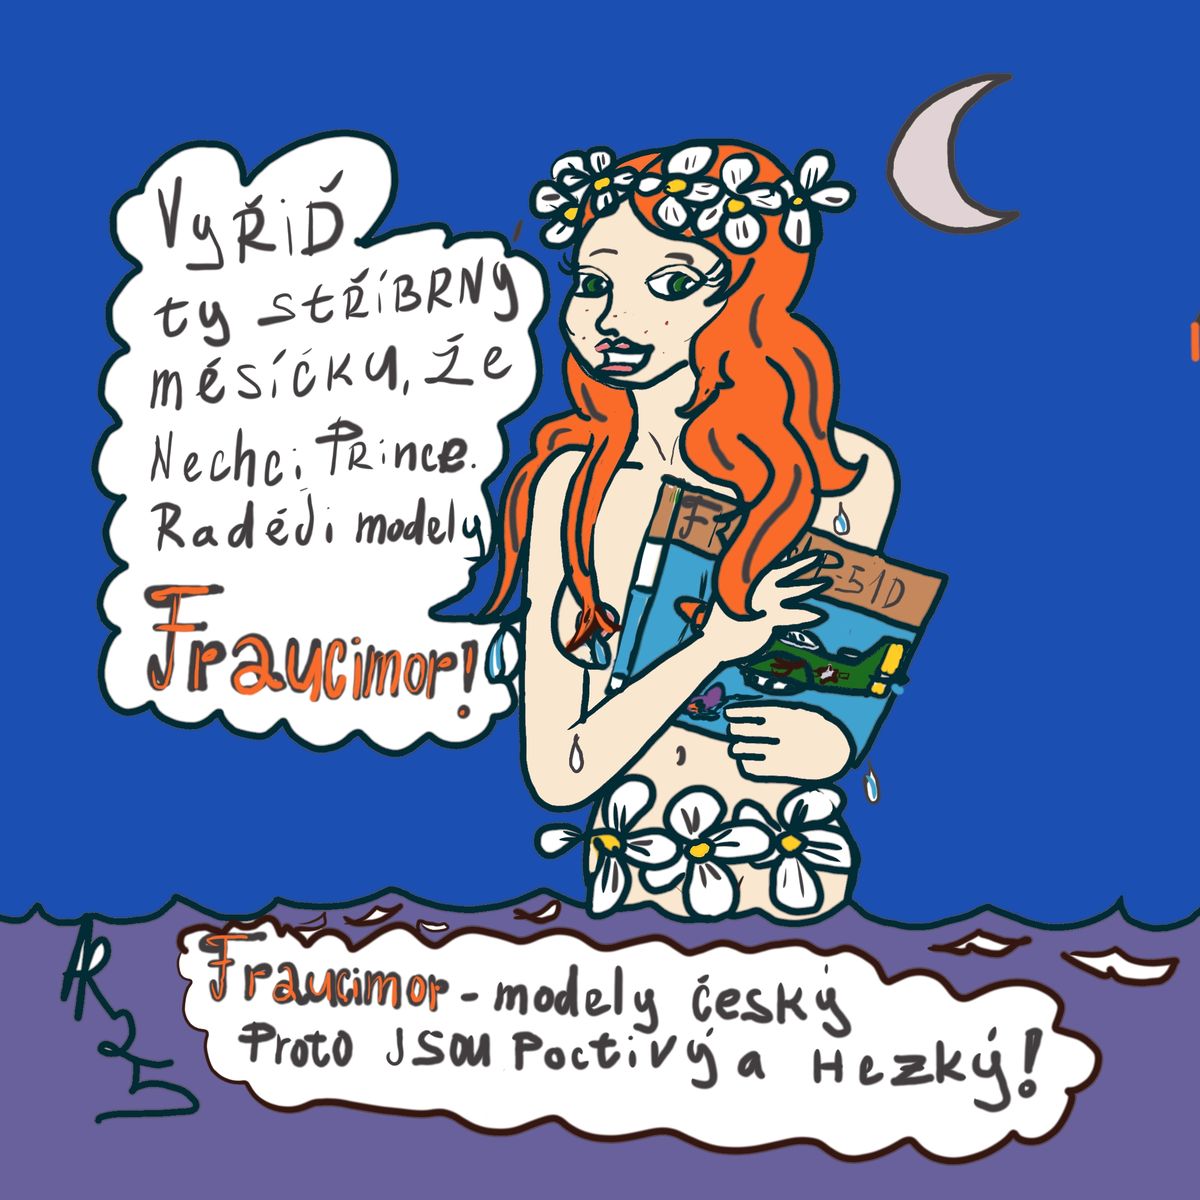 VyŘiĎ
ty stŘíBRNý
měsíčku, že
Nechci Prince.
Raději modely
Fraucimor!
FR P-51D
Fraucimor - modely český
Proto JSOU Poctivý a Hezký!